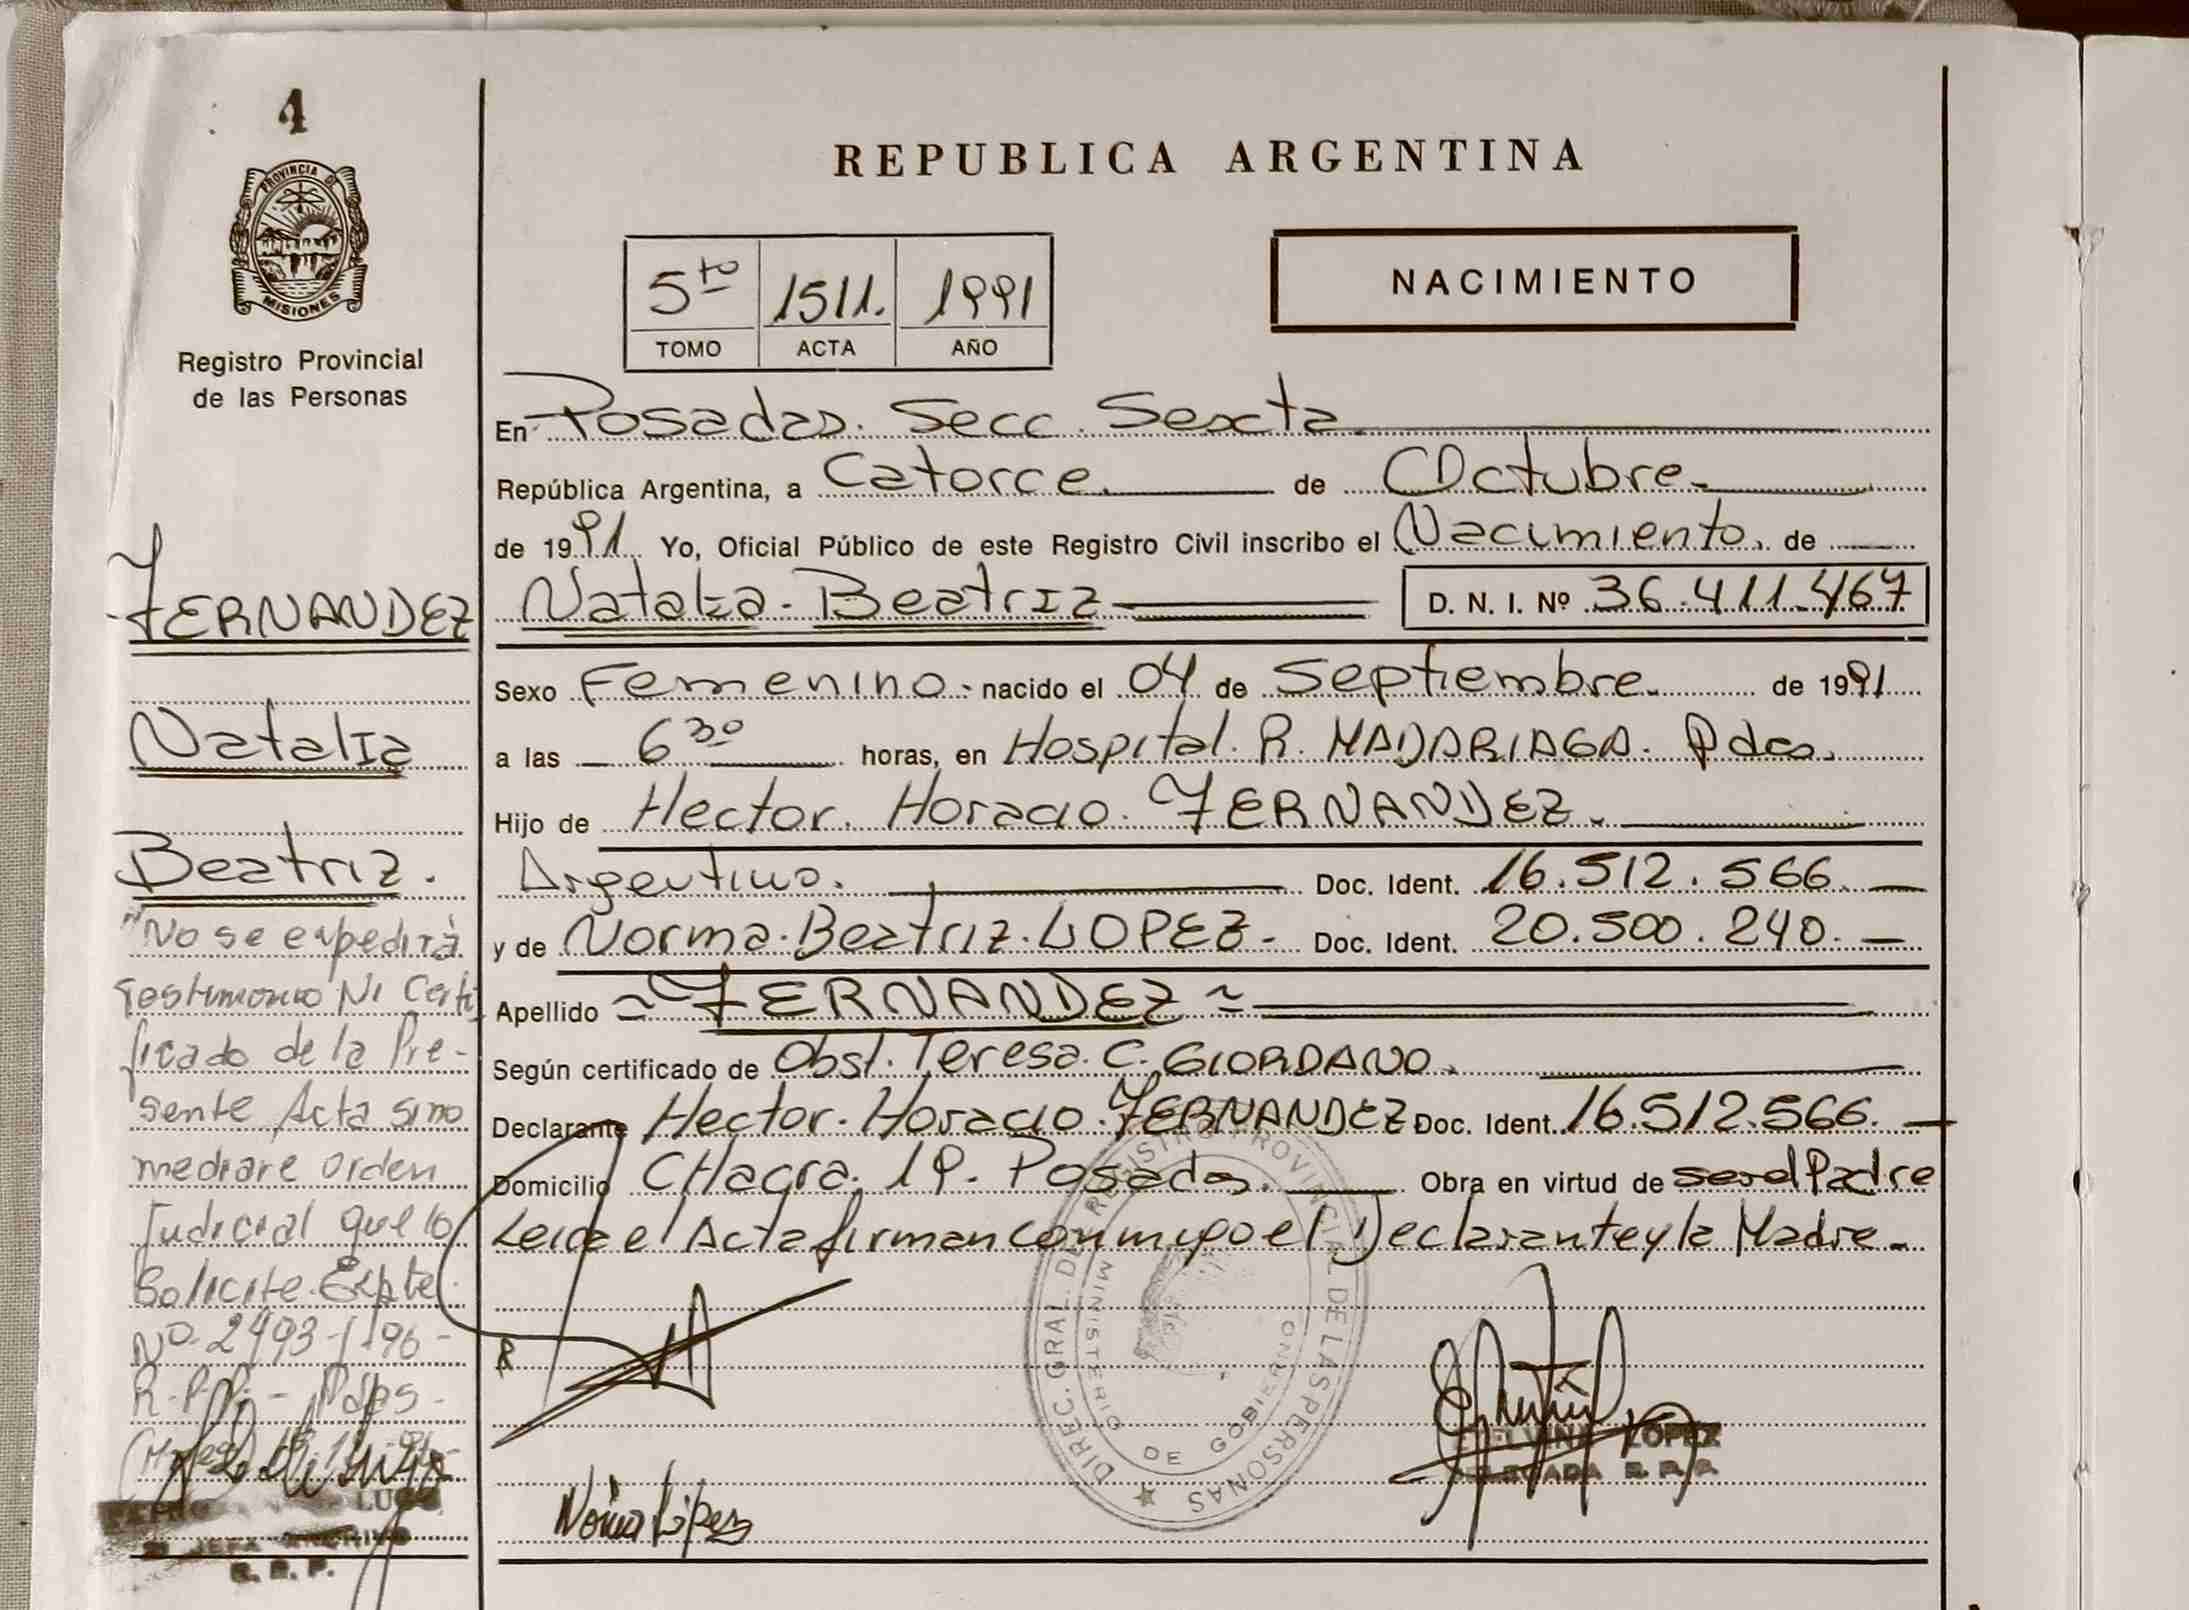 4
PROVINCIA DE
MISIONES
Registro Provincial
de las Personas
FERNANDEZ
Natalia
Beatriz.
"No se expedirá
testimonio Ni Certi
ficado de la Pre-
sente Acta sino
mediare orden
Judicial que lo
Solicite. Expte
Nº 2493-
R.P.P. - Pdas-
LUGO
JEFA ARCHIVO
R. P. P.
REPUBLICA ARGENTINA
5to 1511. 1991
TOMO ACTA AÑO
NACIMIENTO
En Posadas. Secc. Sexta
República Argentina, a Catorce. de Octubre.
de 1991 Yo, Oficial Público de este Registro Civil inscribo el Nacimiento. de
Natalia. Beatriz D. N. I. Nº 36.411.467
Sexo Femenino. nacido el 04 de Septiembre. de 1991
a las 6 30 horas, en Hospital. R. MADARIAGA. Pdas.
Hijo de Hector. Horacio. FERNANDEZ.
Argentino. Doc. Ident. 16.512.566.
y de Norma. Beatriz. LOPEZ- Doc. Ident. 20.500.240.
Apellido = FERNANDEZ =
Según certificado de Obst. Teresa. C. GIORDANO.
Declarante Hector. Horacio. FERNANDEZ Doc. Ident. 16.512.566.
Domicilio CHacra. 19. Posadas. Obra en virtud de ser el Padre
Leida el Acta firman conmigo el Declarante y la Madre.
DIREC. GRAL. DEL REGISTRO PROVINCIAL DE LAS PERSONAS
MINISTERIO DE GOBIERNO
Norma López
ETELVINA LOPEZ
DELEGADA R. P. P.